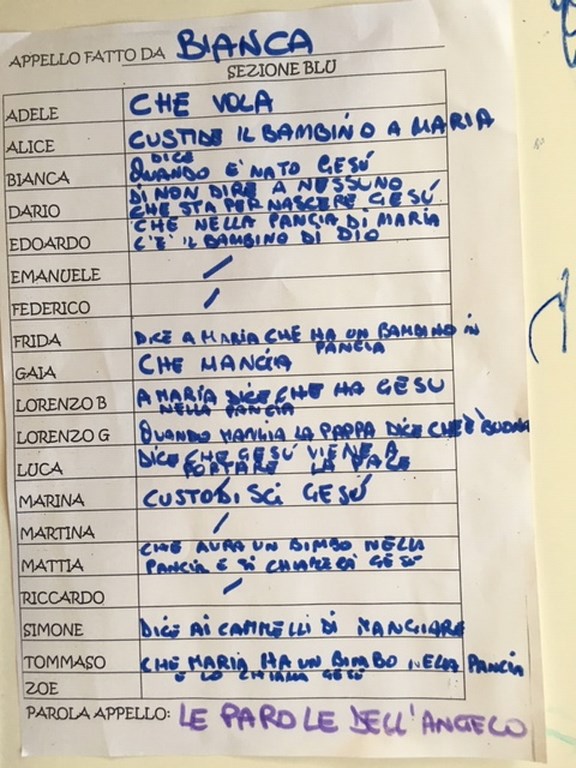 APPELLO FATTO DA BIANCA
SEZIONE BLU
ADELE CHE VOLA
ALICE CUSTIDE IL BAMBINO A MARIA
BIANCA DICE QUANDO E' NATO GESÚ
DARIO DI NON DIRE A NESSUNO
CHE STA PER NASCERE GESÚ
EDOARDO CHE NELLA PANCIA DI MARIA
C'E' IL BAMBINO DI DIO
EMANUELE /
FEDERICO /
FRIDA DICE A MARIA CHE HA UN BAMBINO IN
PANCIA
GAIA CHE MANGIA
LORENZO B A MARIA DICE CHE HA GESU
NELLA PANCIA
LORENZO G QUANDO MANGIA LA PAPPA DICE CHE È BUONA
LUCA DICE CHE GESÚ VIENE A
PORTARE LA PACE
MARINA CUSTODISCI GESÚ
MARTINA /
MATTIA CHE AVRA UN BIMBO NELLA
PANCIA E SI CHIAMERÀ GESÚ
RICCARDO /
SIMONE DICE AI CAMMELLI DI MANGIARE
TOMMASO CHE MARIA HA UN BIMBO NELLA PANCIA
E LO CHIAMA GESÚ
ZOE
PAROLA APPELLO: LE PAROLE DELL'ANGELO